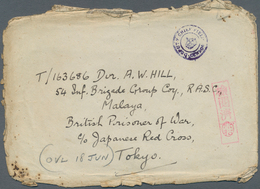 T/163686 Dvr. A.W. HILL,
54 Inf. Brigade Group Coy., R.A.S.C,
Malaya,
British Prisoner of War,
c/o Japanese Red Cross,
(OVL 18 JUN) Tokyo.